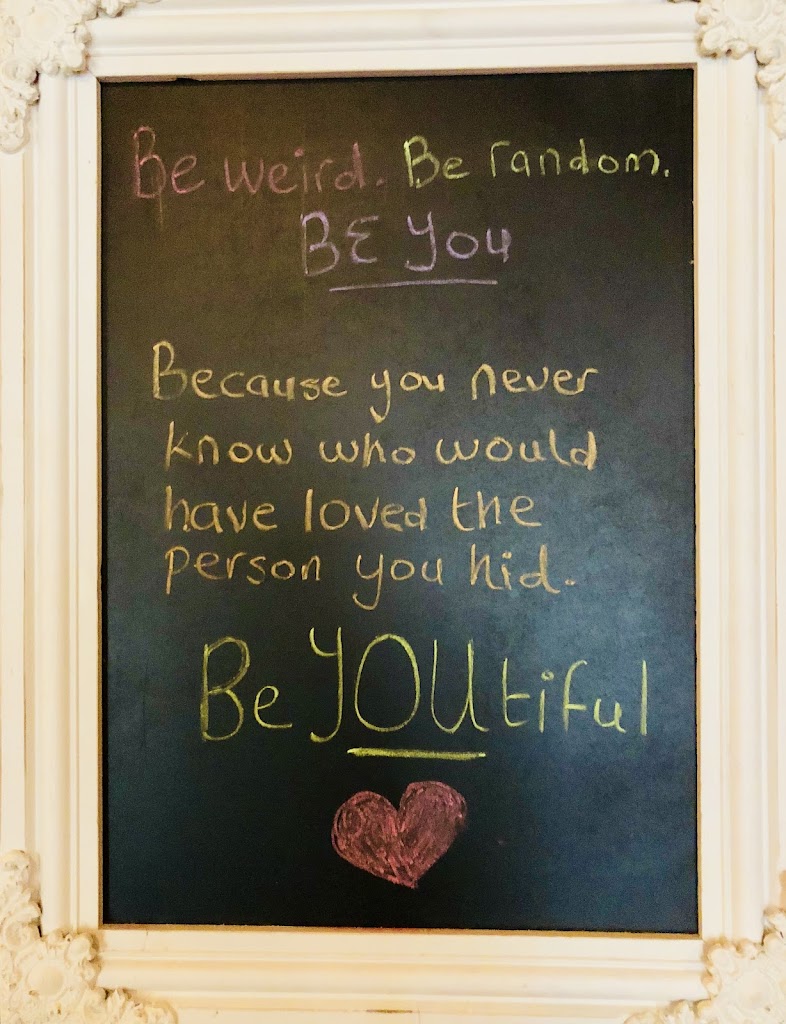 Be weird. Be random.
BE you
Because you never
know who would
have loved the
person you hid.
Be YOUtiful